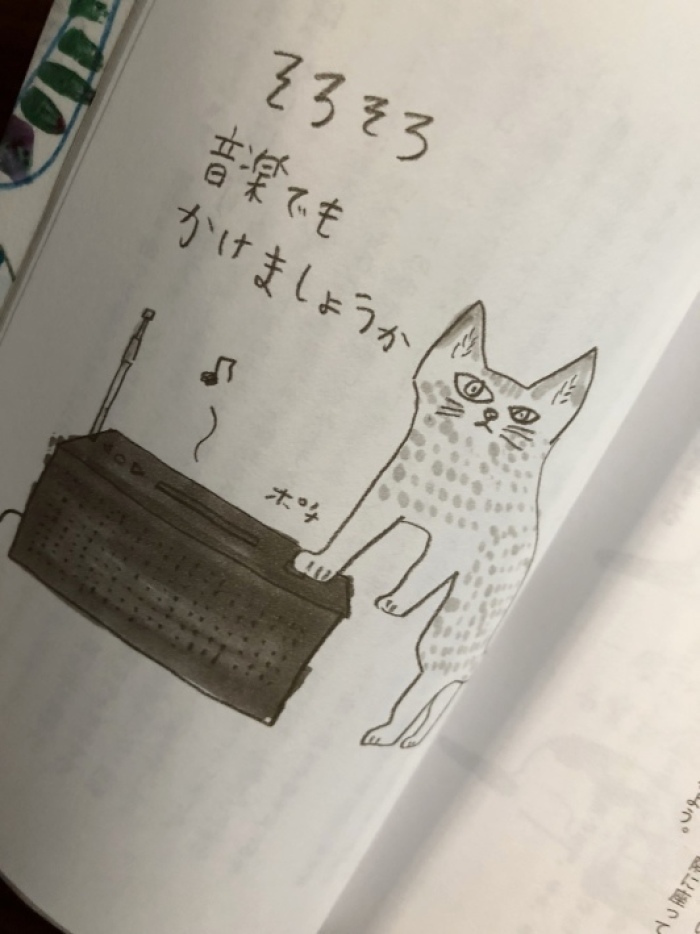 そろそろ
音楽でも
かけましょうか
ポチ